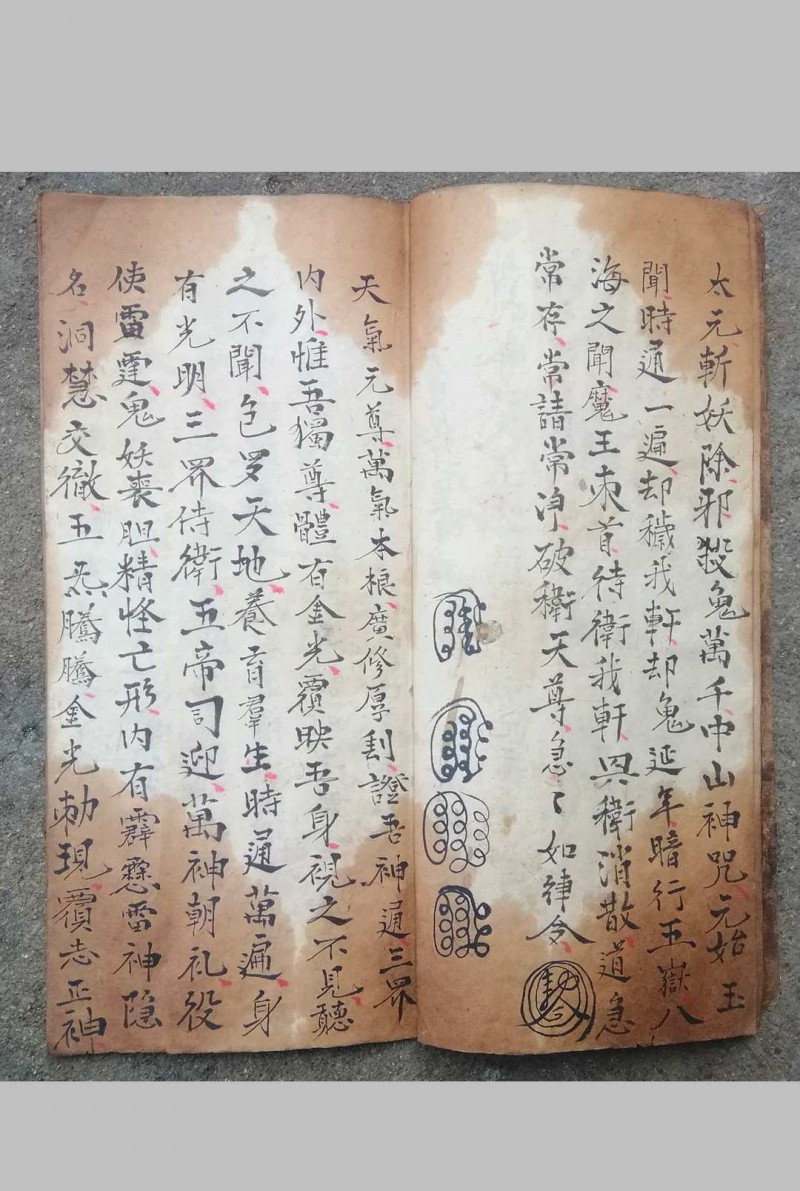 太元斬妖除邪殺鬼萬千中山神咒元始玉
聞時通一遍却穢我軒却鬼延年暗行五嶽八
海之聞魔王束首待衛我軒㓙衛消散道急
常存常請常淨破衛天尊急〻如律令
天氣元尊萬氣本根廣修厚刦證吾神通三界
内外惟吾獨尊體有金光覆映吾身視之不見聽
之不聞包罗天地養育羣生時通萬遍身
有光明三界侍衛五帝司迎萬神朝礼役
使雷霆鬼妖喪胆精怪亡形内有霹靂雷神隐
名洞慧交徹五炁騰騰金光勅現覆志正神